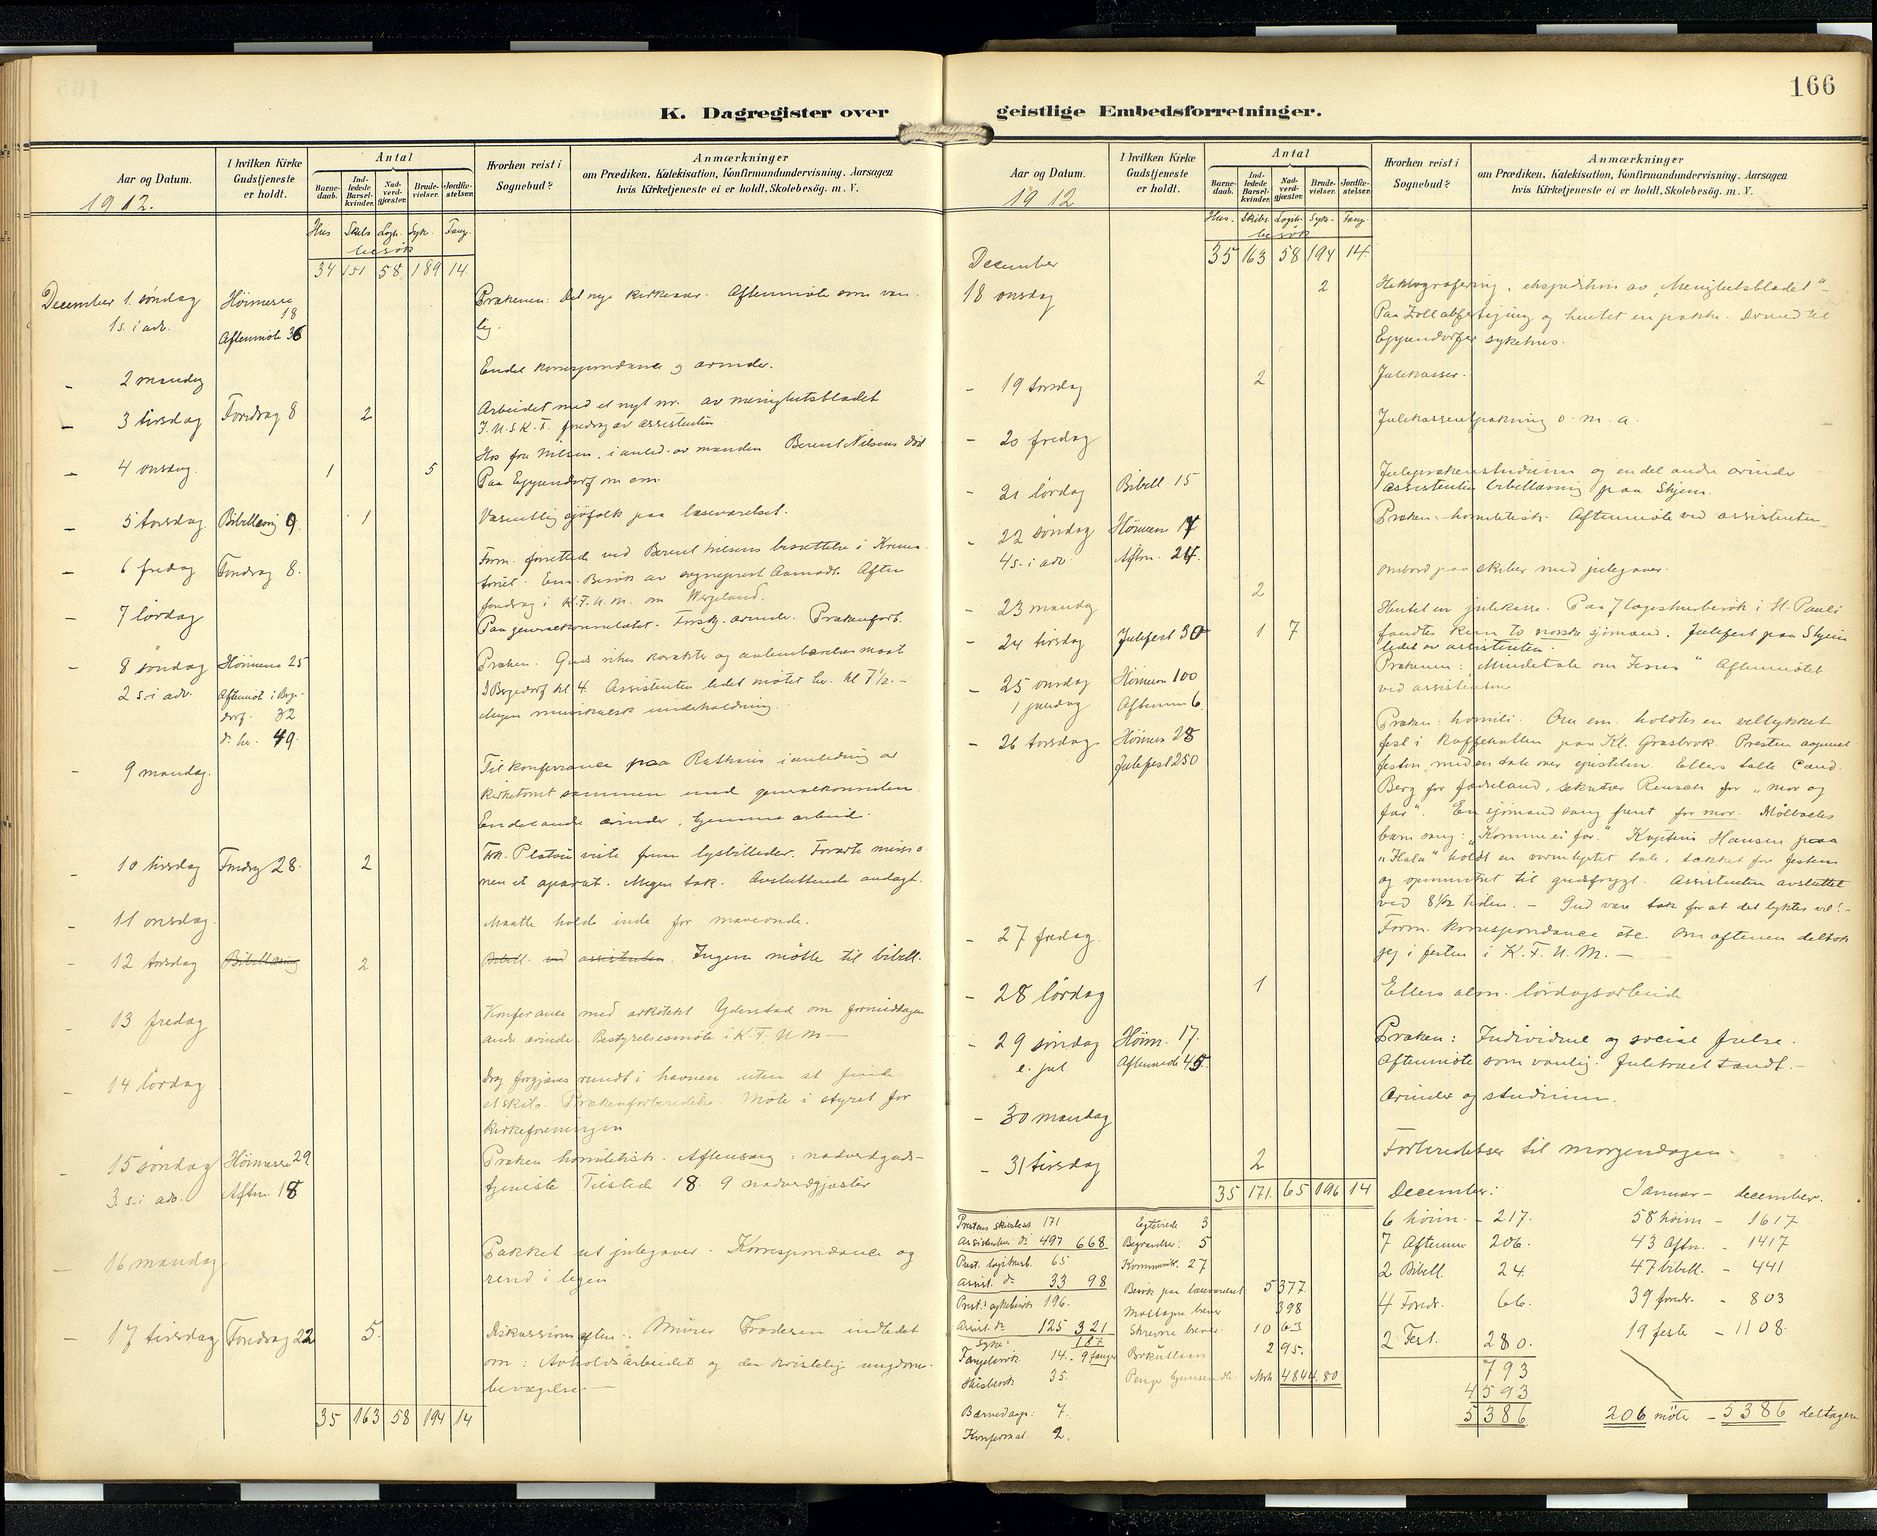 166
K. Dagregister over geistlige Embedsforretninger.
Aar og Datum.
1912.
I hvilken Kirke Gudstjeneste er holdt.
Antal
Barnedaab.
Indledede Barselkvinder.
Nadverdgjæster.
Brudevielser.
Jordfæstelser.
Hvorhen reist i Sognebud?
Anmærkninger
om Prædiken, Katekisation, Konfirmandundervisning. Aarsagen
hvis Kirketjeneste ei er holdt. Skolebesøg. m. V.
Hus Skibs Logh. Syk. Fang.
besøk
34 151 58 189 14
December 1. søndag Høimesse 18 Prækenen: Det nye kirkeaar. Aftenmøte som van-
1 s. i adv. Aftenmøte 36 lig.
2 mandag Endel korrespondance og ærinder.
3 tirsdag Foredrag 8 2 Arbeidet med et nyt nr. av menighetsbladet
K.F. foredrag av assistenten
4 onsdag. 1 5 Hos fru Nilsen, i anled. av manden Berent Nilsens død
Paa Eppendorf m. em.
5 torsdag Bibellæsning 9. 1 Væsentlig sjøfolk paa læseværelset.
6 fredag Foredrag 8. Form. forrettede ved Berent Nilsens bisættelse i Krema-
toriet. Em. Besøk av sogneprest Aamodt. Aften
foredrag i K.F.U.M. om Wergeland.
7 lørdag Paa generalkonsulatet. Forskj. ærinder. Prækenforb.
8 søndag Høimesse 25 Præken. Guds rikes karakter og
2 s. i adv. Aftenmøt i Berge- I Bergedorf kl 4. Assistenten ledet møtet her. kl 7½. –
dorf. 32 Megen musikalsk underholdning.
d: her. 49.
9 mandag. Til konferance paa Rathaus i anledning av
kirketomt sammen med generalkonsulen.
Endel andre ærinder. Hjemmearbeid.
10 tirsdag Foredrag 28. 2 Frk. Platou viste frem lysbilleder. Forærte missio-
nen et aparat. Megen tak. Avsluttende andagt.
11 onsdag. Maatte holde inde for maveonde.
12 torsdag Bibellæsning 2 Bibell. ved assistenten. Ingen møtte til bibell.
13 fredag Konferance med arkitekt om formiddagen
andre ærinder. Bestyrelsesmøte i K.F.U.M. —
14 lørdag Drog forgjæves rundt i havnen uten at finde
et skib. Prækenforberedelse. Møte i styret for
kirkeforeningen
15 søndag Høimesse 29 Præken homiletisk. Aftensang: nadverdguds-
3. s. i adv. Aftm. 18 tjeneste Tilstede 18. 9 nadverdgjæster
16 mandag Pakket ut julegaver. Korrespondance og
rend i byen
17 tirsdag Foredrag 22 5. Diskussionsaften: Murer Frodesen indledet
om: Avholdsarbeidet og den kristelige ungdoms-
bevægelse —
35 163 58 194 14
Aar og Datum.
1912
I hvilken Kirke Gudstjeneste er holdt.
Antal
Barnedaab.
Indledede Barselkvinder.
Nadverdgjæster.
Brudevielser.
Jordfæstelser.
Hvorhen reist i Sognebud?
Anmærkninger
om Prædiken, Katekisation, Konfirmandundervisning. Aarsagen
hvis Kirketjeneste ei er holdt. Skolebesøg. m. V.
Hus. Skibs. Logh. Syk. Fang.
besøk
35 163 58 194 14.
December
18 onsdag 2 Hektografering, ekspedition av „Menighetsbladet"
Paa Zollabfertigung og hentet en pakke. Dermed til
Eppendorfer sykehus.
19 torsdag 2 Julekasser.
20 fredag Julekasseutpakning o. m. a.
21 lørdag Bibell 15 Juleprækenstudium og en del andre ærinder
assistenten bibellæsning paa Skjem.
22 søndag Høimesse 17 Præken: homiletisk. Aftenmøte ved assistenten
4 s. i adv Aftm. 24.
23 mandag 2 ombord paa skibe med julegaver.
24 tirsdag Julefest 30 1 7 Hentet en julekasse. Paa 7 logishusbesøk i St. Pauli
fandtes kun to norske sjømænd. Julefest paa Skjem
ledet av assistenten.
25 onsdag Høimesse 100 Prækenen: Mindetale om Jesus" Aftenmøtet
1 juledag Aftenm 6 ved assistenten
26 torsdag Høimes 28 Præken: homili. Om em. holdtes en vellykket
Julefest 250 fest i kaffehallen paa Kl. Grasbrok. Presten aapnet
festen med en tale over epistelen. Ellers talte Cand.
Berg for fædreland, sekretær Rensch for „mor og
far". En sjømand sang først for mor. Mølbachs
barn sang: „Komme ei far." Kaptein Hansen paa
„Hala" holdt en varmhjertet tale, takket for festen
og opmuntret til gudsfrygt. Assistenten avsluttet
ved 8½ tiden. – Gud være tak for at det lyktes vel! –
27 fredag. Form. korrespondance etc. Om aftenen deltok
jeg i festen i K.F.U.M. —
28 lørdag 1 Ellers alm. lørdagsarbeide
29 søndag Høim. 17. Præken: Individuel og social frelse.
e. jul Aftenmøte 45. Aftenmøte som vanlig. Juletræet tændt. –
30 mandag Ærinder og studium.
31 tirsdag 2 Forberedelser til morgendagen.
35 171. 65 196 14
Prestens skibsbesøk 171
Assistentens do 497 668
Prest. logihusb. 65
Assist. do 33 98
Prest. sykebesøk 196.
Assist. do 125 321
Syke: 187
Fangebesøk 14. – 9 fanger
Husbesøk 35.
Barnedaap: 7.
Konfirmat. 2.
Egteviede 3
Begravelser: 5
Kommunik. 27
Besøk paa læseværelset 5377
Mottagne breve 398
Skrevne breve 1063
295.
Penge hjemsendte Mrk 4844.80
December:
6 høim. – 217.
7 Aftenm 206.
2 Bibell. 24.
4 Foredr. 66.
2 Fest. 280.
793
4593
5386
Januar – december.
58 høim – 1617
43 Aftn. – 1417
47 bibell. – 441
39 foredr. – 803
19 feste – 1108.
206 møte – 5386 deltagere